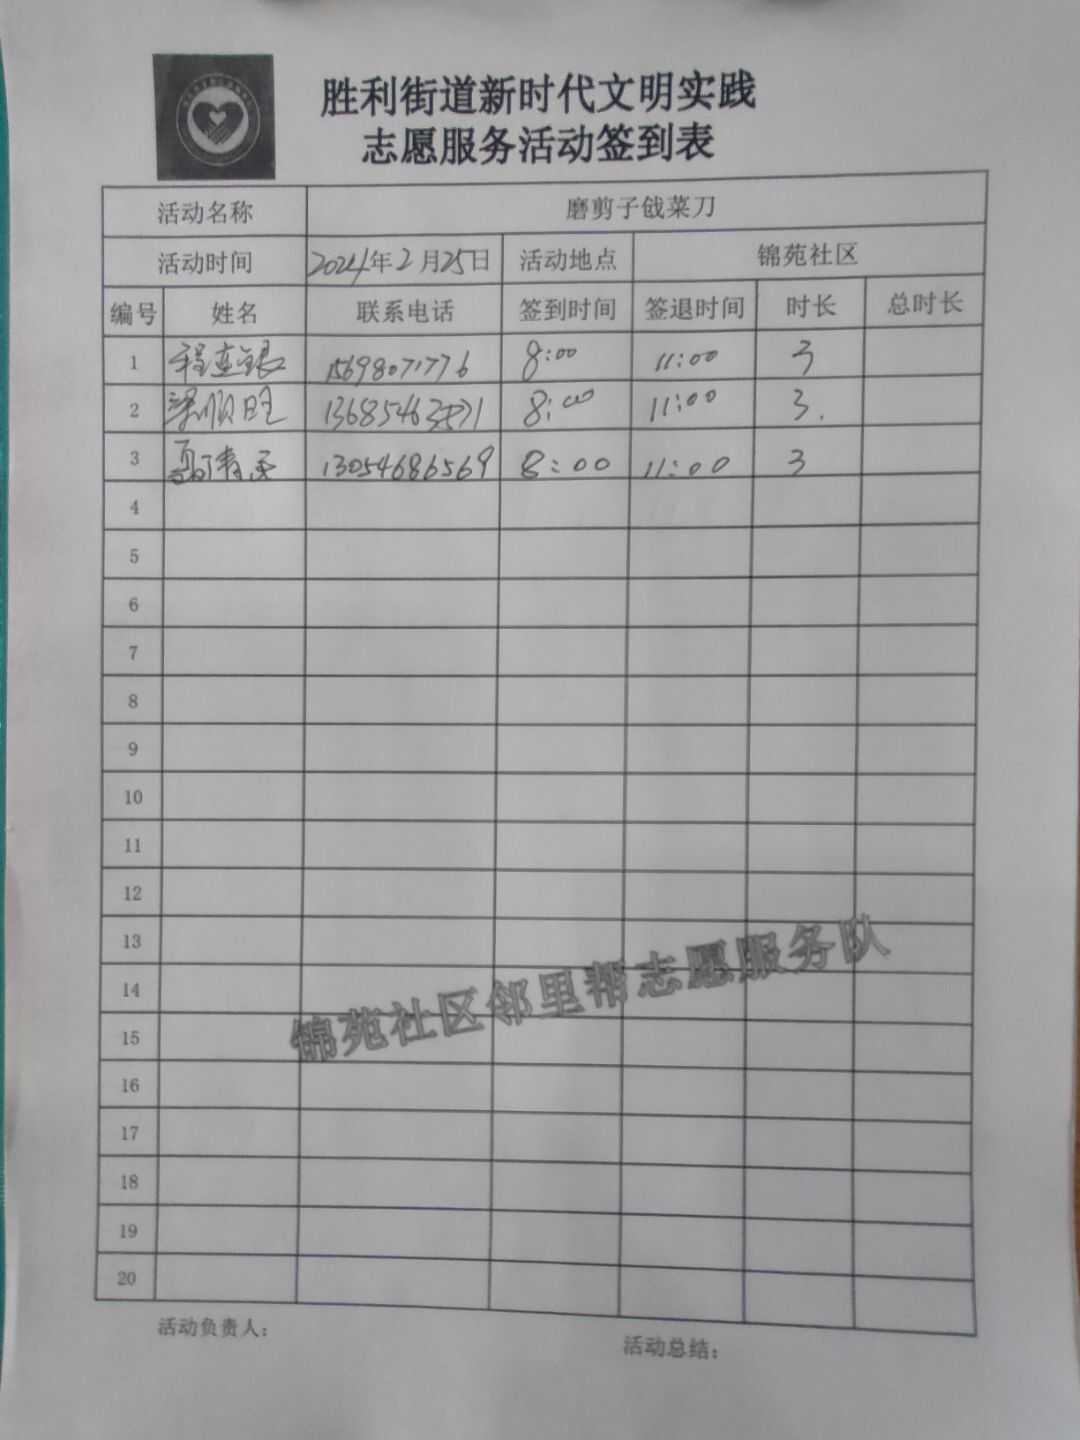 胜利街道新时代文明实践
志愿服务活动签到表
活动名称 磨剪子戗菜刀
活动时间 2024年2月25日 活动地点 锦苑社区
编号 姓名 联系电话 签到时间 签退时间 时长 总时长
1 程连银 15698071776 8:00 11:00 3
2 梁顺旺 13685463571 8:00 11:00 3.
3 13054686569 8:00 11:00 3
4
5
6
7
8
9
10
11
12
13
14
15
16
17
18
19
20
锦苑社区邻里帮志愿服务队
活动负责人:
活动总结: